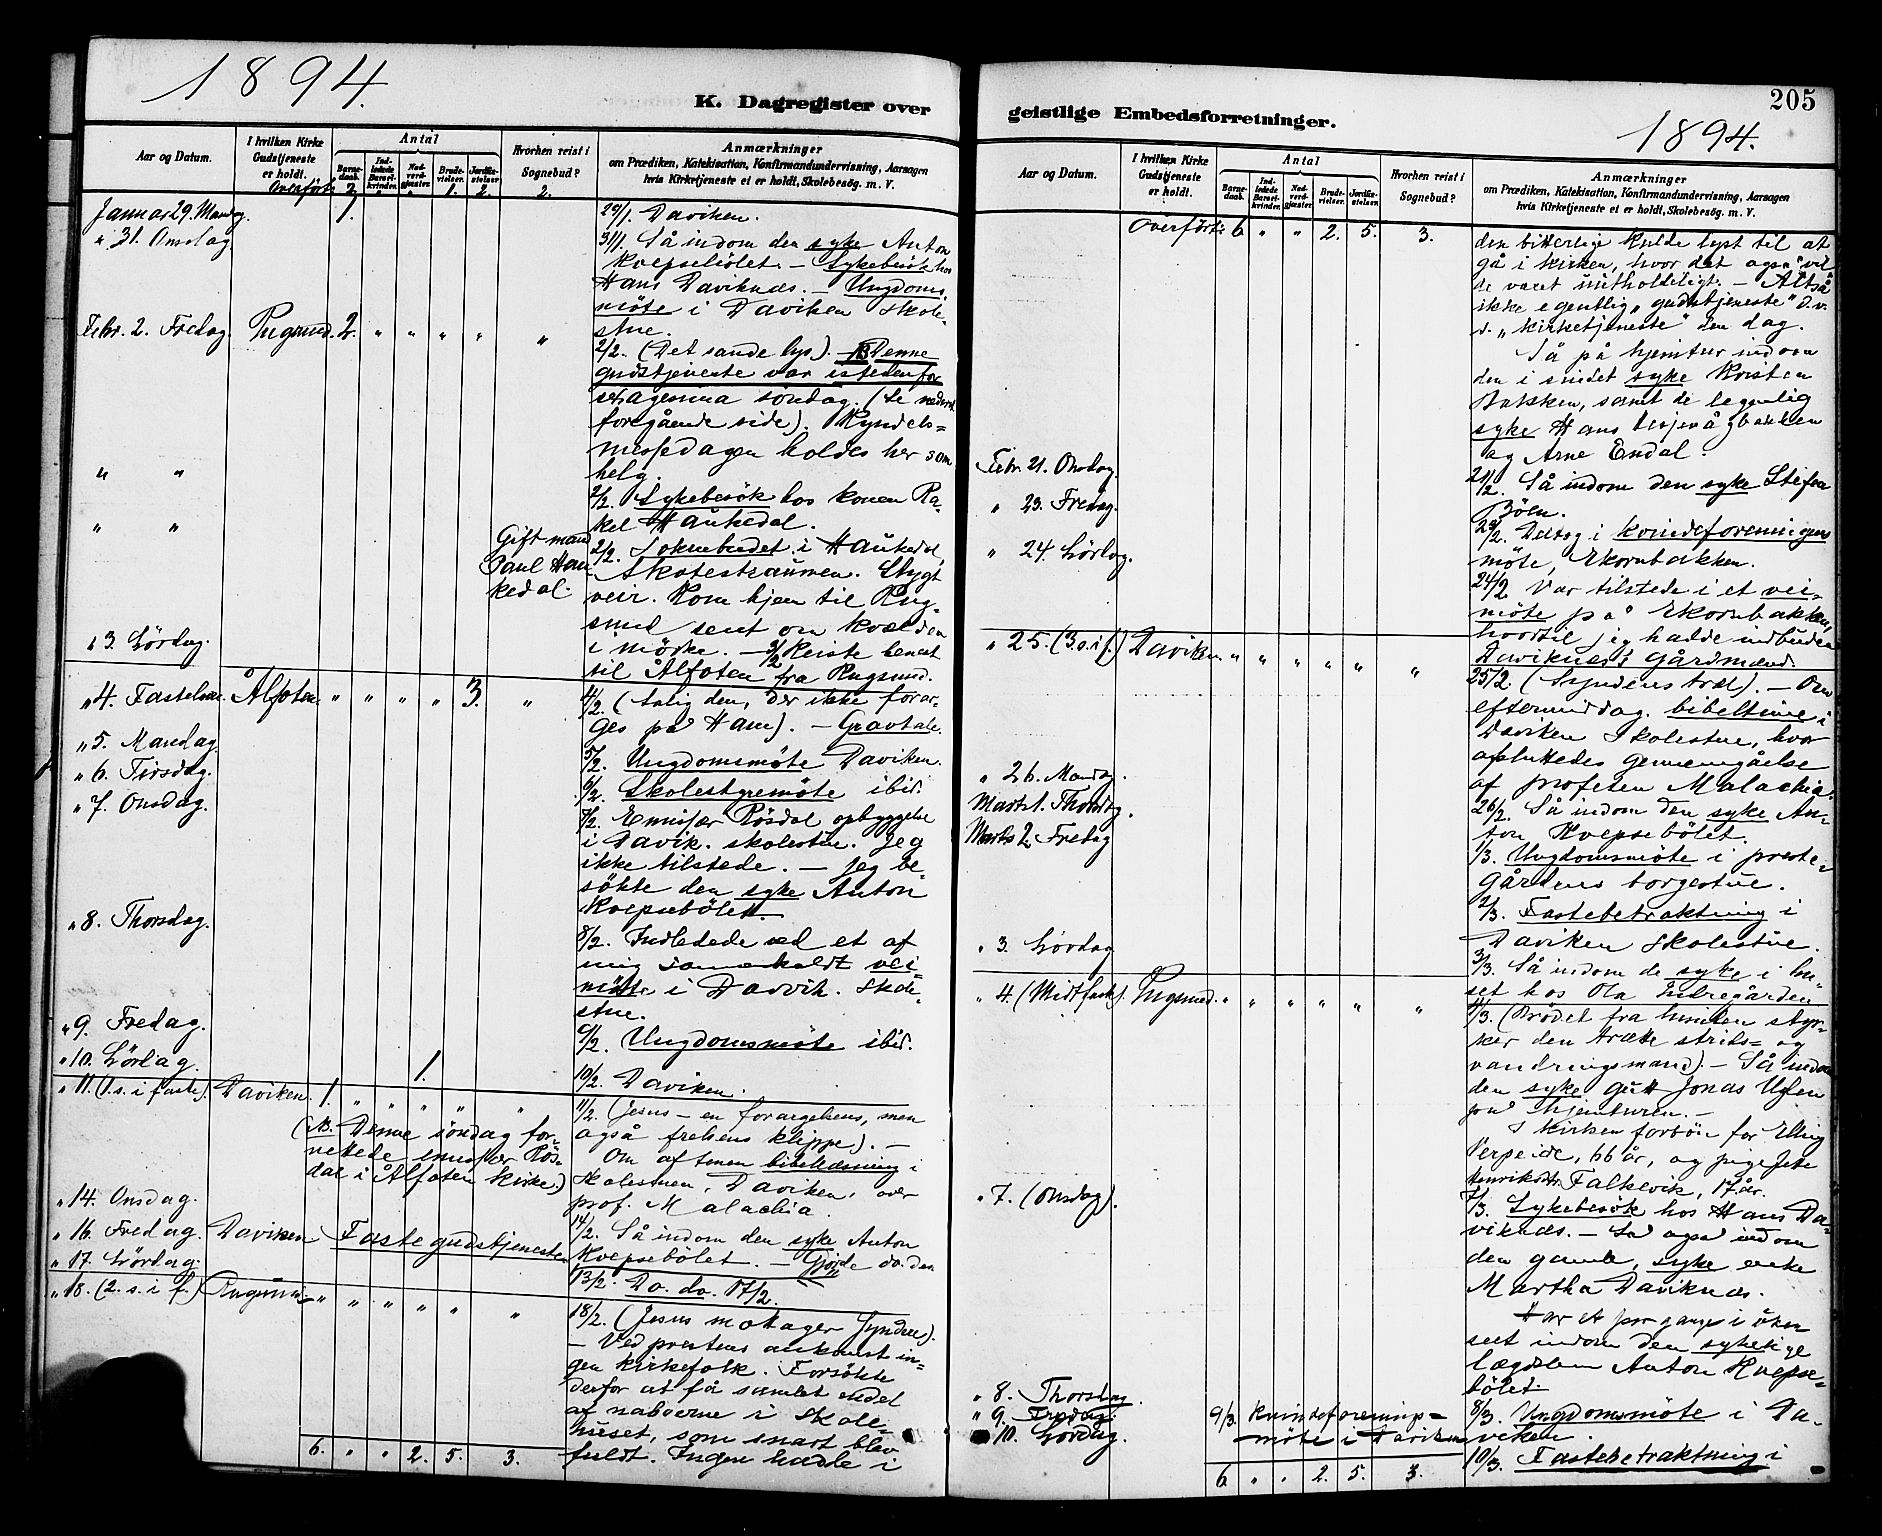 1894.
K. Dagregister over
Aar og Datum.
I hvilken Kirke Gudstjeneste er holdt.
Antal
Barnedaab.
Indledede Barselkvinder.
Nadverdgjæster.
Brudevielser.
Jordfæstelser.
Hvorhen reist i Sognebud?
Anmærkninger
om Prædiken, Katekisation, Konfirmandundervisning, Aarsagen
hvis Kirketjeneste ei er holdt, Skolebesøg. m. V.
Overført: 2. " " 1. 2. 2.
Januar 29. Mandag. 1.
29/1. Daviken.
" 31. Onsdag
31/1. Så indom den syke Anton
Kvepsebölet. – Sykebesök hos
Hans Daviknæs. – Ungdoms
möte i Daviken skole-
stue.
Febr. 2. Fredag. Rugsund. 2. " " " " "
2/2. (Det sande lys). NB Denne
gudstjeneste var istedenfor
sexagesima söndag. (Se nederst
foregående side). Kyndels=
messedagen holdes her som
helg.
" "
2/2. Sykebesök hos konen Ra-
kel Haukedal.
" "
Gift mand
Paul Hau
kedal.
2/2. Soknebudet i Haukedal,
Skatestraumen. Stygt
veir. Kom hjem til Rug-
sund sent om kvælden
i mörke. – 3/2 Reiste senest
til Ålfoten fra Rugsund.
" 3. Lördag.
" 4. Fastelavn. Ålfoten. " " " " 3. "
4/2. (Salig den, der ikke forar-
ges på Ham). – Gravtale.
" 5. Mandag
5/2. Ungdomsmöte Daviken.
" 6. Tirsdag.
6/2. Skolestyremöte ibid.
" 7. Onsdag.
7/2. Emissær Rösdal opbyggelse
i Davik. skolestue. Jeg
ikke tilstede. – Jeg be-
sökte den syke Anton
Kvepsebölet.
" 8. Thorsdag.
8/2. Indledede ved et af
mig sammenkaldt vei-
möte i Davik. Skole-
stue.
" 9. Fredag.
9/2. Ungdomsmöte ibid.
" 10. Lördag. 1.
10/2. Daviken.
" 11. (1. s. i faste). Daviken. 1. " " " " "
11/2. (Jesus – en forargelsens, men
også frelsens klippe). –
(NB. Denne söndag for-
rettede emissær Rös-
dal i Ålfoten kirke.)
Om aftenen bibellæsning i
skolestuen, Daviken, over
prof. Malachia.
" 14. Onsdag.
14/2. Så indom den syke Anton
Kvepsebölet. – Gjorde do. den
" 16. Fredag. Daviken Fastegudstjeneste
" 17. Lördag.
13/2. Do. do. 17/2.
" 18. (2. s. i f.) Rugsund " " " " " "
18/2. (Jesus motager Syndere).
– Ved prestens ankomst in-
gen kirkefolk. Forsökte
derfor at få samlet endel
af naboerne i skole-
huset, som snart blev
fuldt. Ingen hadde i
6. " " 2. 5. 3.
205
geistlige Embedsforretninger.
1894.
Aar og Datum.
I hvilken Kirke Gudstjeneste er holdt.
Antal
Barnedaab.
Indledede Barselkvinder.
Nadverdgjæster.
Brudevielser.
Jordfæstelser.
Hvorhen reist i Sognebud?
Anmærkninger
om Prædiken, Katekisation, Konfirmandundervisning, Aarsagen
hvis Kirketjeneste ei er holdt, Skolebesøg. m. V.
Overfört: 6 " " 2. 5. 3.
den bitterlige kulde lyst til at
gå i kirken, hvor det også vil-
de været uutholdeligt. – Altså
ikke egentlig "gudstjeneste" d.v.
s. "kirketjeneste" den dag.
Så på hjemtur indom
den i sindet syke Kristen
Bakken, samt de legemlig
syke Hans
og Arne Endal.
Febr. 21. Onsdag.
21/2. Så indom den syke Stefen
Böen.
" 23. Fredag.
23/2. Deltog i kvindeforeningens
möte, Ekornbakken.
" 24. Lördag.
24/2 Var tilstede i et vei-
möte på Ekornbakken,
hvortil jeg hadde indbudt
Daviknæs's gårdmænd.
" 25. (3. s. i f.) Daviken. " " " " " "
25/2. (Syndens træl). – Om
eftermiddag. bibeltime i
Daviken Skolestue, hvor
afsluttedes gennemgåelse
af profeten Malachia.
" 26. Mandag.
26/2. Så indom den syke An-
ton Kvepsebölet.
Marts 1. Thorsdag.
1/3. Ungdomsmöte i preste-
gårdens borgestue.
Marts 2. Fredag
2/3. Fastebetraktning i
Daviken Skolestue.
" 3. Lördag
3/3. Så indom de syke i hu-
set hos Ola Indregården
" 4. (Midtfaste). Rugsund. " " " " " "
4/3. (Brödet fra himlen styr-
ker den trætte strids- og
vandringsmand). – Så indom
den syke gut Jonas
på hjemturen. –
I kirken forbön for Elling
Verpeide, 66 år, og pige
Henriksdtr. Falkevik, 17 år.
" 7. (Onsdag).
7/3. Sykebesök hos Hans Da-
viknæs. – Så også indom
den gamle, syke enke
Martha Daviknæs.
Har et par gange i uken
seet indom den sykelige
lægdslem Anton Kvepse-
bölet.
" 8. Thorsdag.
8/3. Ungdomsmöte i Da-
viken.
" 9. Fredag.
9/3. Kvindeforenings-
möte i Daviken
" 10. Lördag.
10/3. Fastebetraktning i
6 " " 2. 5. 3.